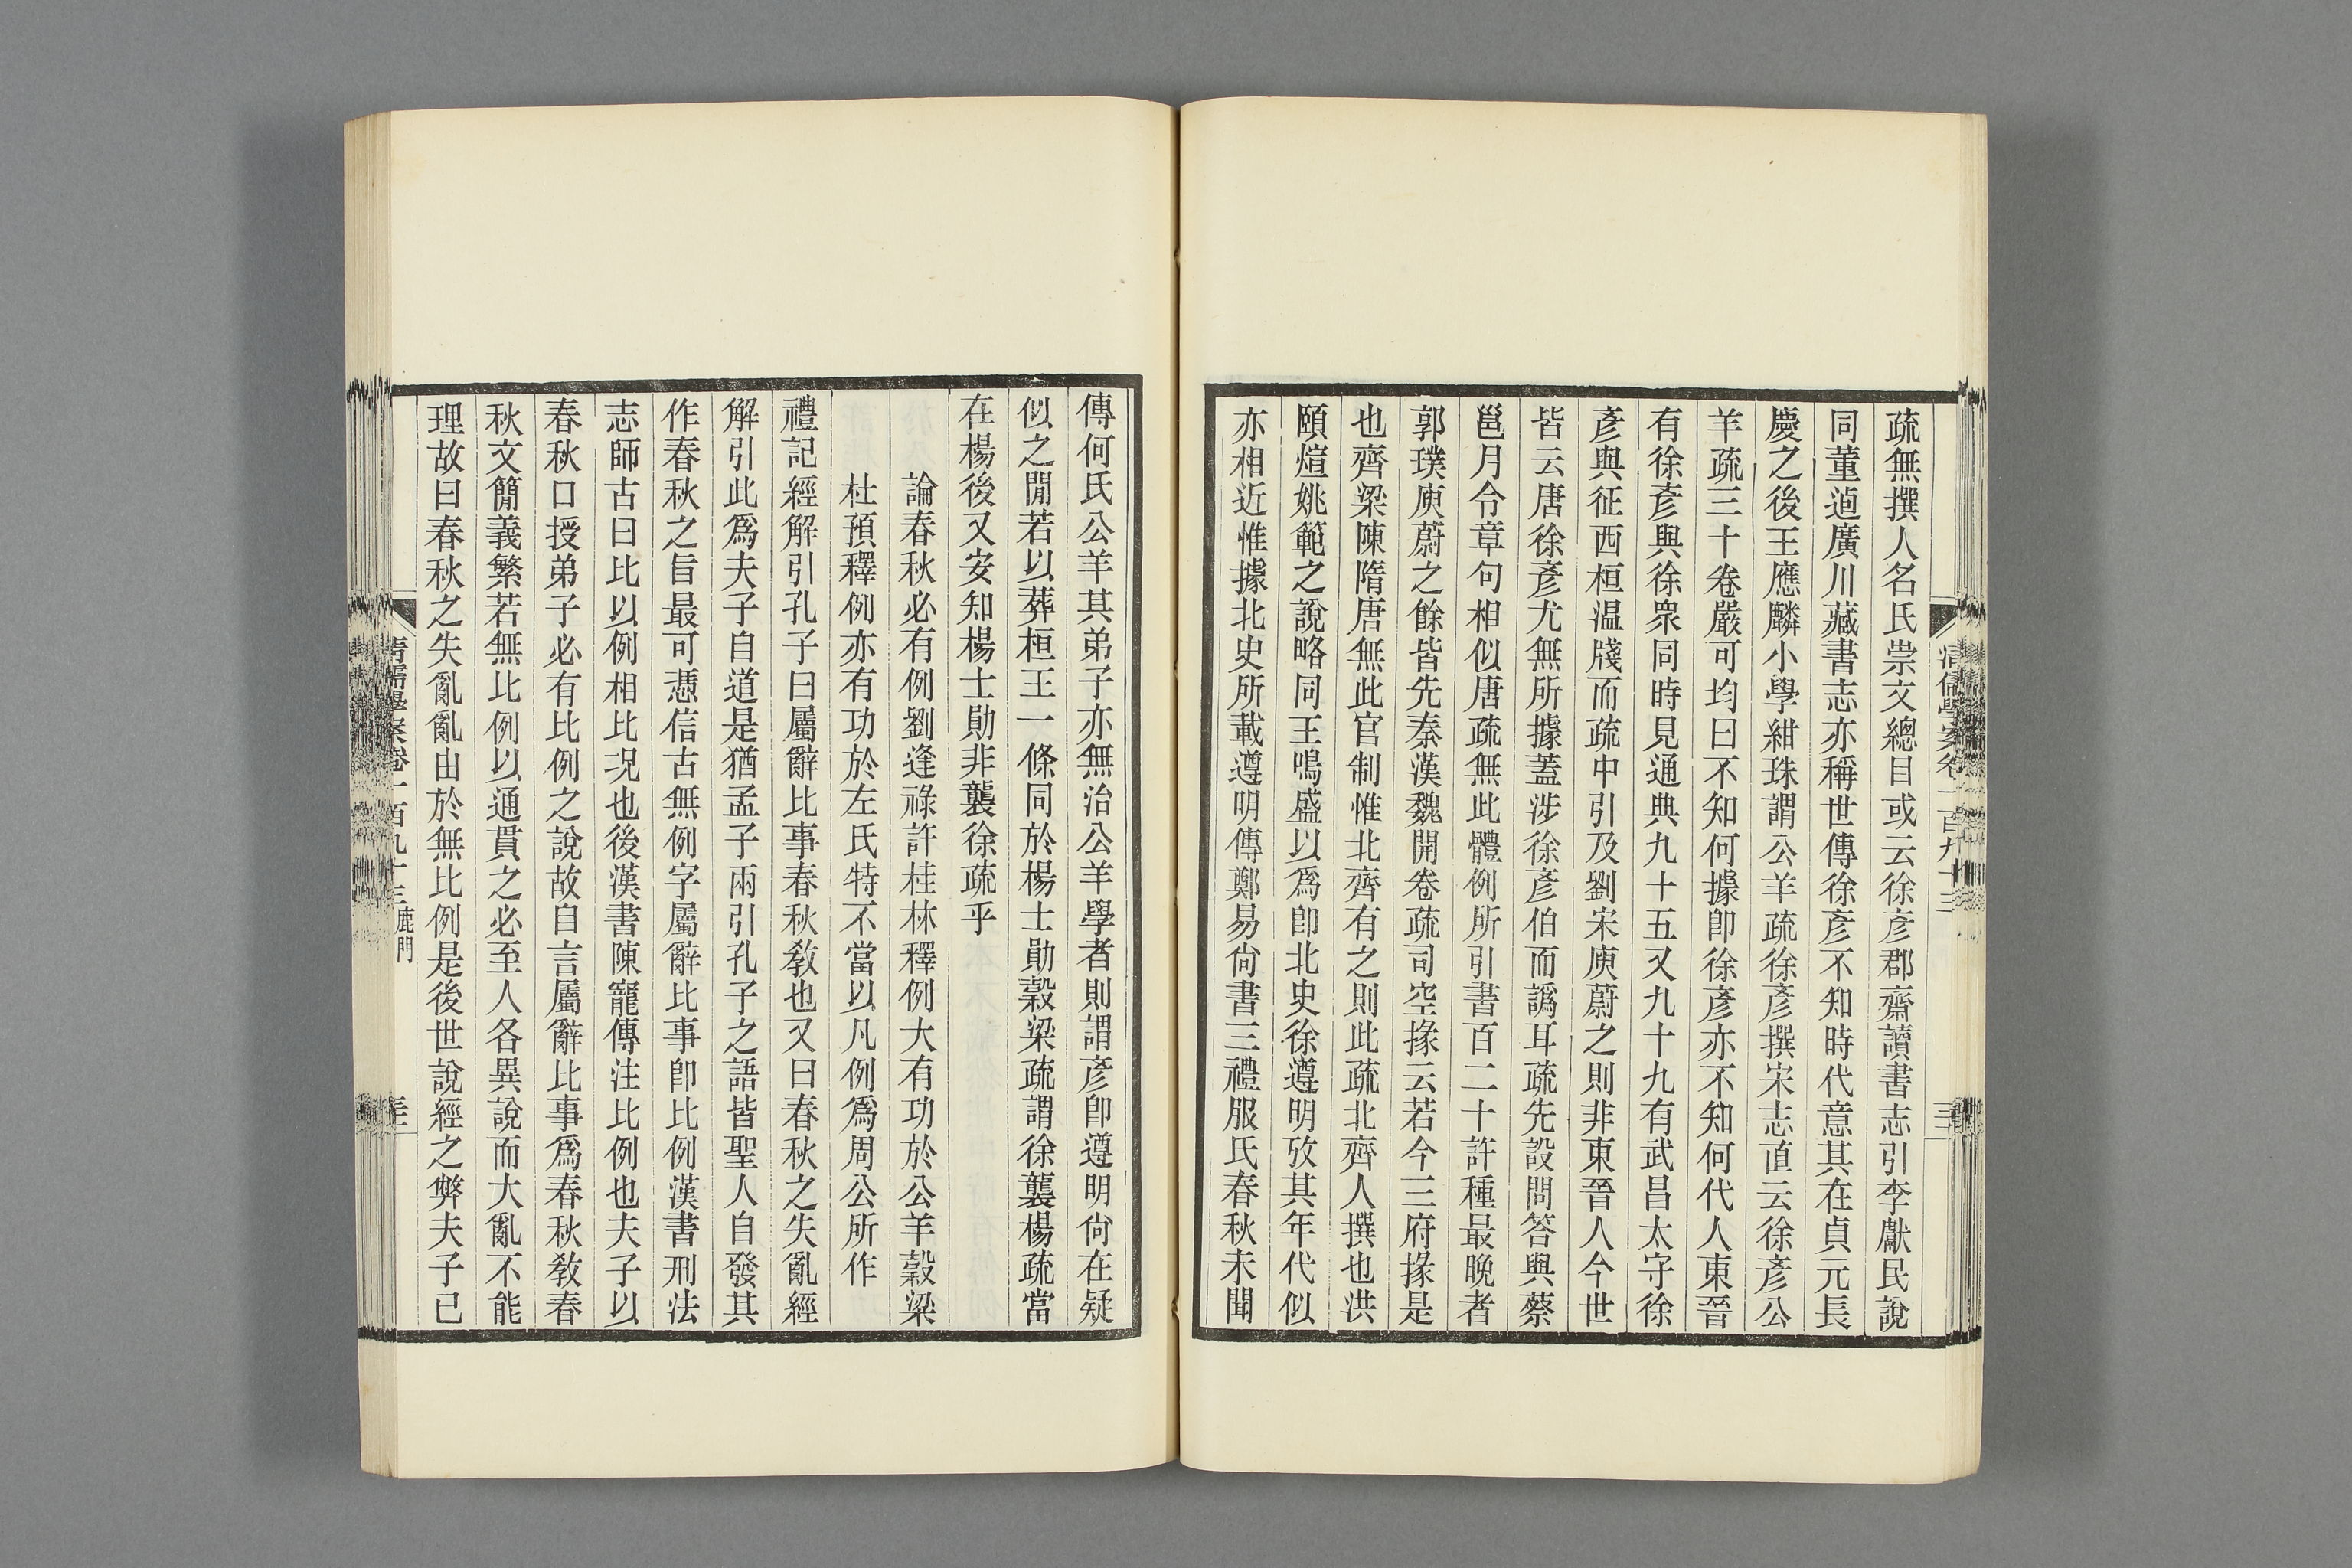 疏無撰人名氏崇文總目或云徐彥郡齋讀書志引李獻民說
同董逌廣川藏書志亦稱世傳徐彥不知時代意其在貞元長
慶之後王應麟小學紺珠謂公羊疏徐彥撰宋志直云徐彥公
羊疏三十卷嚴可均曰不知何據卽徐彥亦不知何代人東晉
有徐彥與徐衆同時見通典九十五又九十九有武昌太守徐
彥與征西桓温牋而疏中引及劉宋庾蔚之則非東晉人今世
皆云唐徐彥尤無所據蓋涉徐彥伯而譌耳疏先設問答與蔡
邕月令章句相似唐疏無此體例所引書百二十許種最晚者
郭璞庾蔚之餘皆先秦漢魏開卷疏司空掾云若今三府掾是
也齊梁陳隋唐無此官制惟北齊有之則此疏北齊人撰也洪
頤煊姚範之說略同王鳴盛以爲卽北史徐遵明攷其年代似
亦相近惟據北史所載遵明傳鄭易尙書三禮服氏春秋未聞
傳何氏公羊其弟子亦無治公羊學者則謂彥卽遵明尙在疑
似之閒若以葬桓王一條同於楊士勛穀梁疏謂徐襲楊疏當
在楊後又安知楊士勛非襲徐疏乎
論春秋必有例劉逢祿許桂林釋例大有功於公羊穀梁
杜預釋例亦有功於左氏特不當以凡例爲周公所作
禮記經解引孔子曰屬辭比事春秋敎也又曰春秋之失亂經
解引此爲夫子自道是猶孟子兩引孔子之語皆聖人自發其
作春秋之旨最可憑信古無例字屬辭比事卽比例漢書刑法
志師古曰比以例相比況也後漢書陳寵傳注比例也夫子以
春秋口授弟子必有比例之說故自言屬辭比事爲春秋敎春
秋文簡義繁若無比例以通貫之必至人各異說而大亂不能
理故曰春秋之失亂亂由於無比例是後世說經之弊夫子已
清儒學案卷一百九十三鹿門